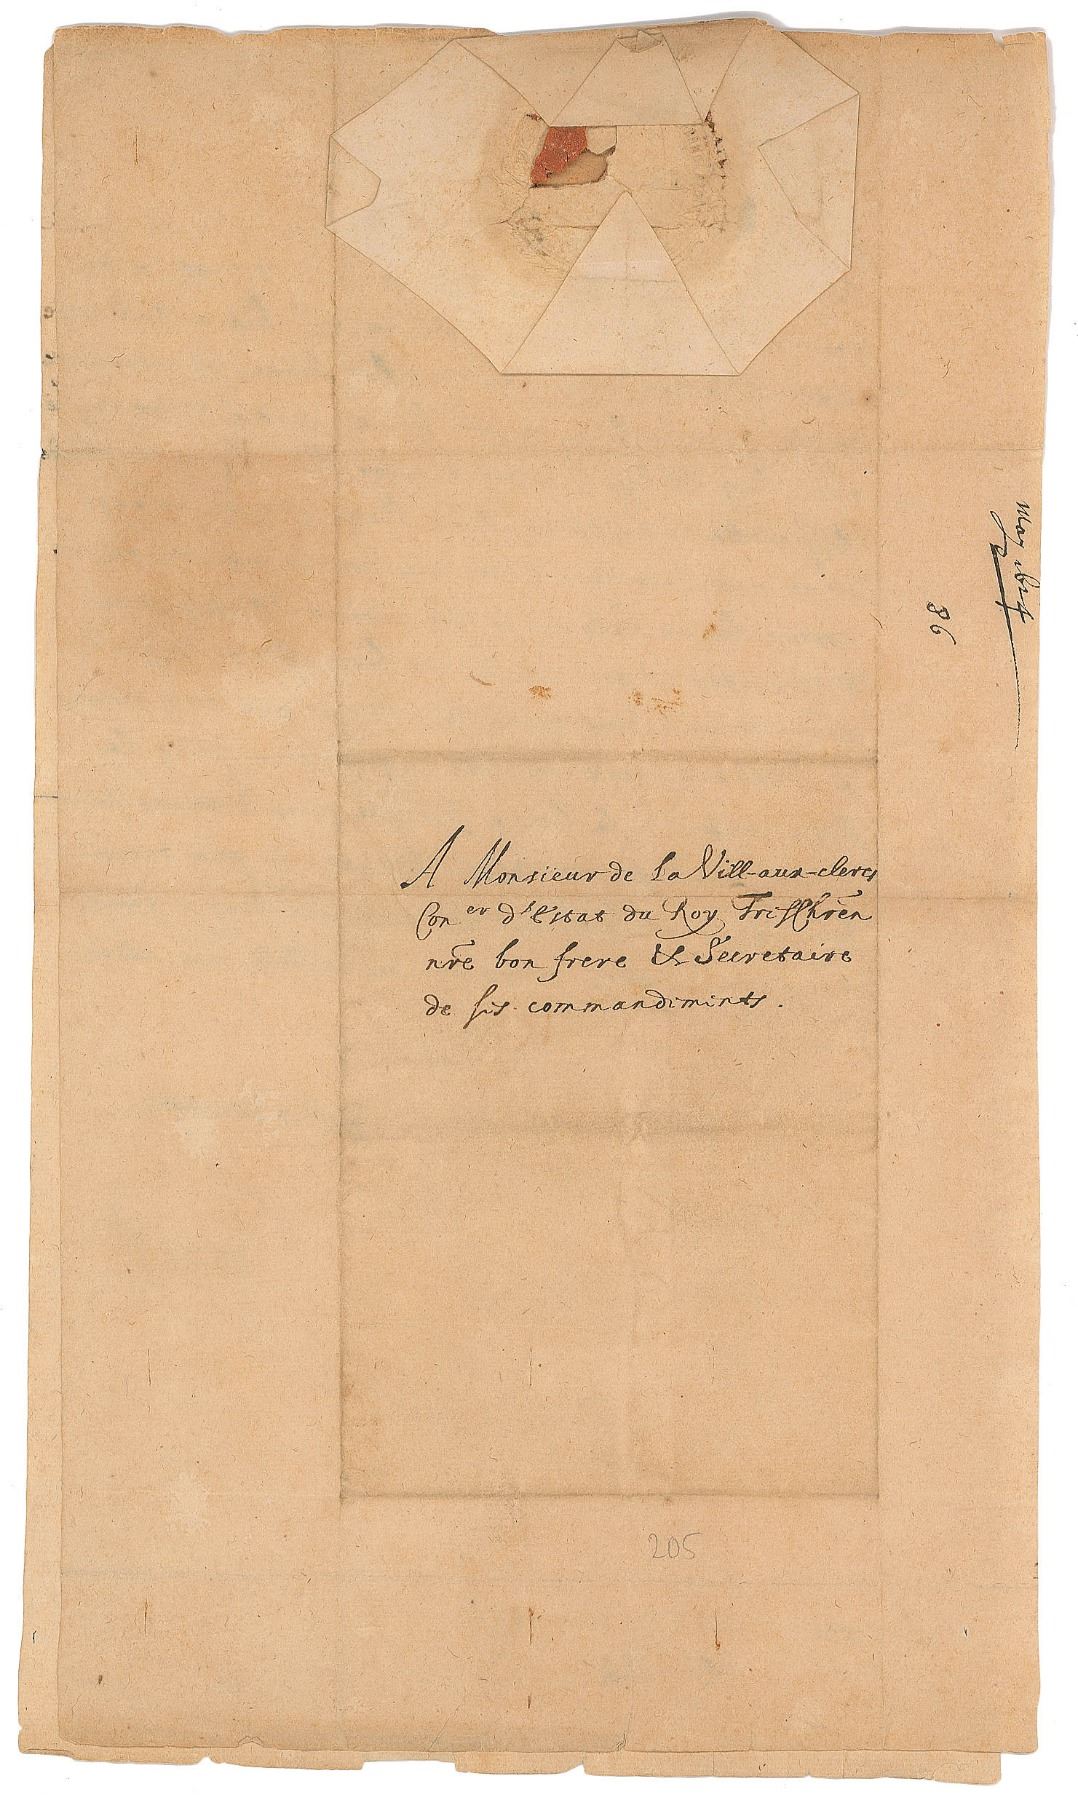 A Monsieur de la Vill-aux-clercs
Con er d'Estat du Roy Tres Chrēn
nr̄e bon frere & Secretaire
de ses commandements.
may
86
205